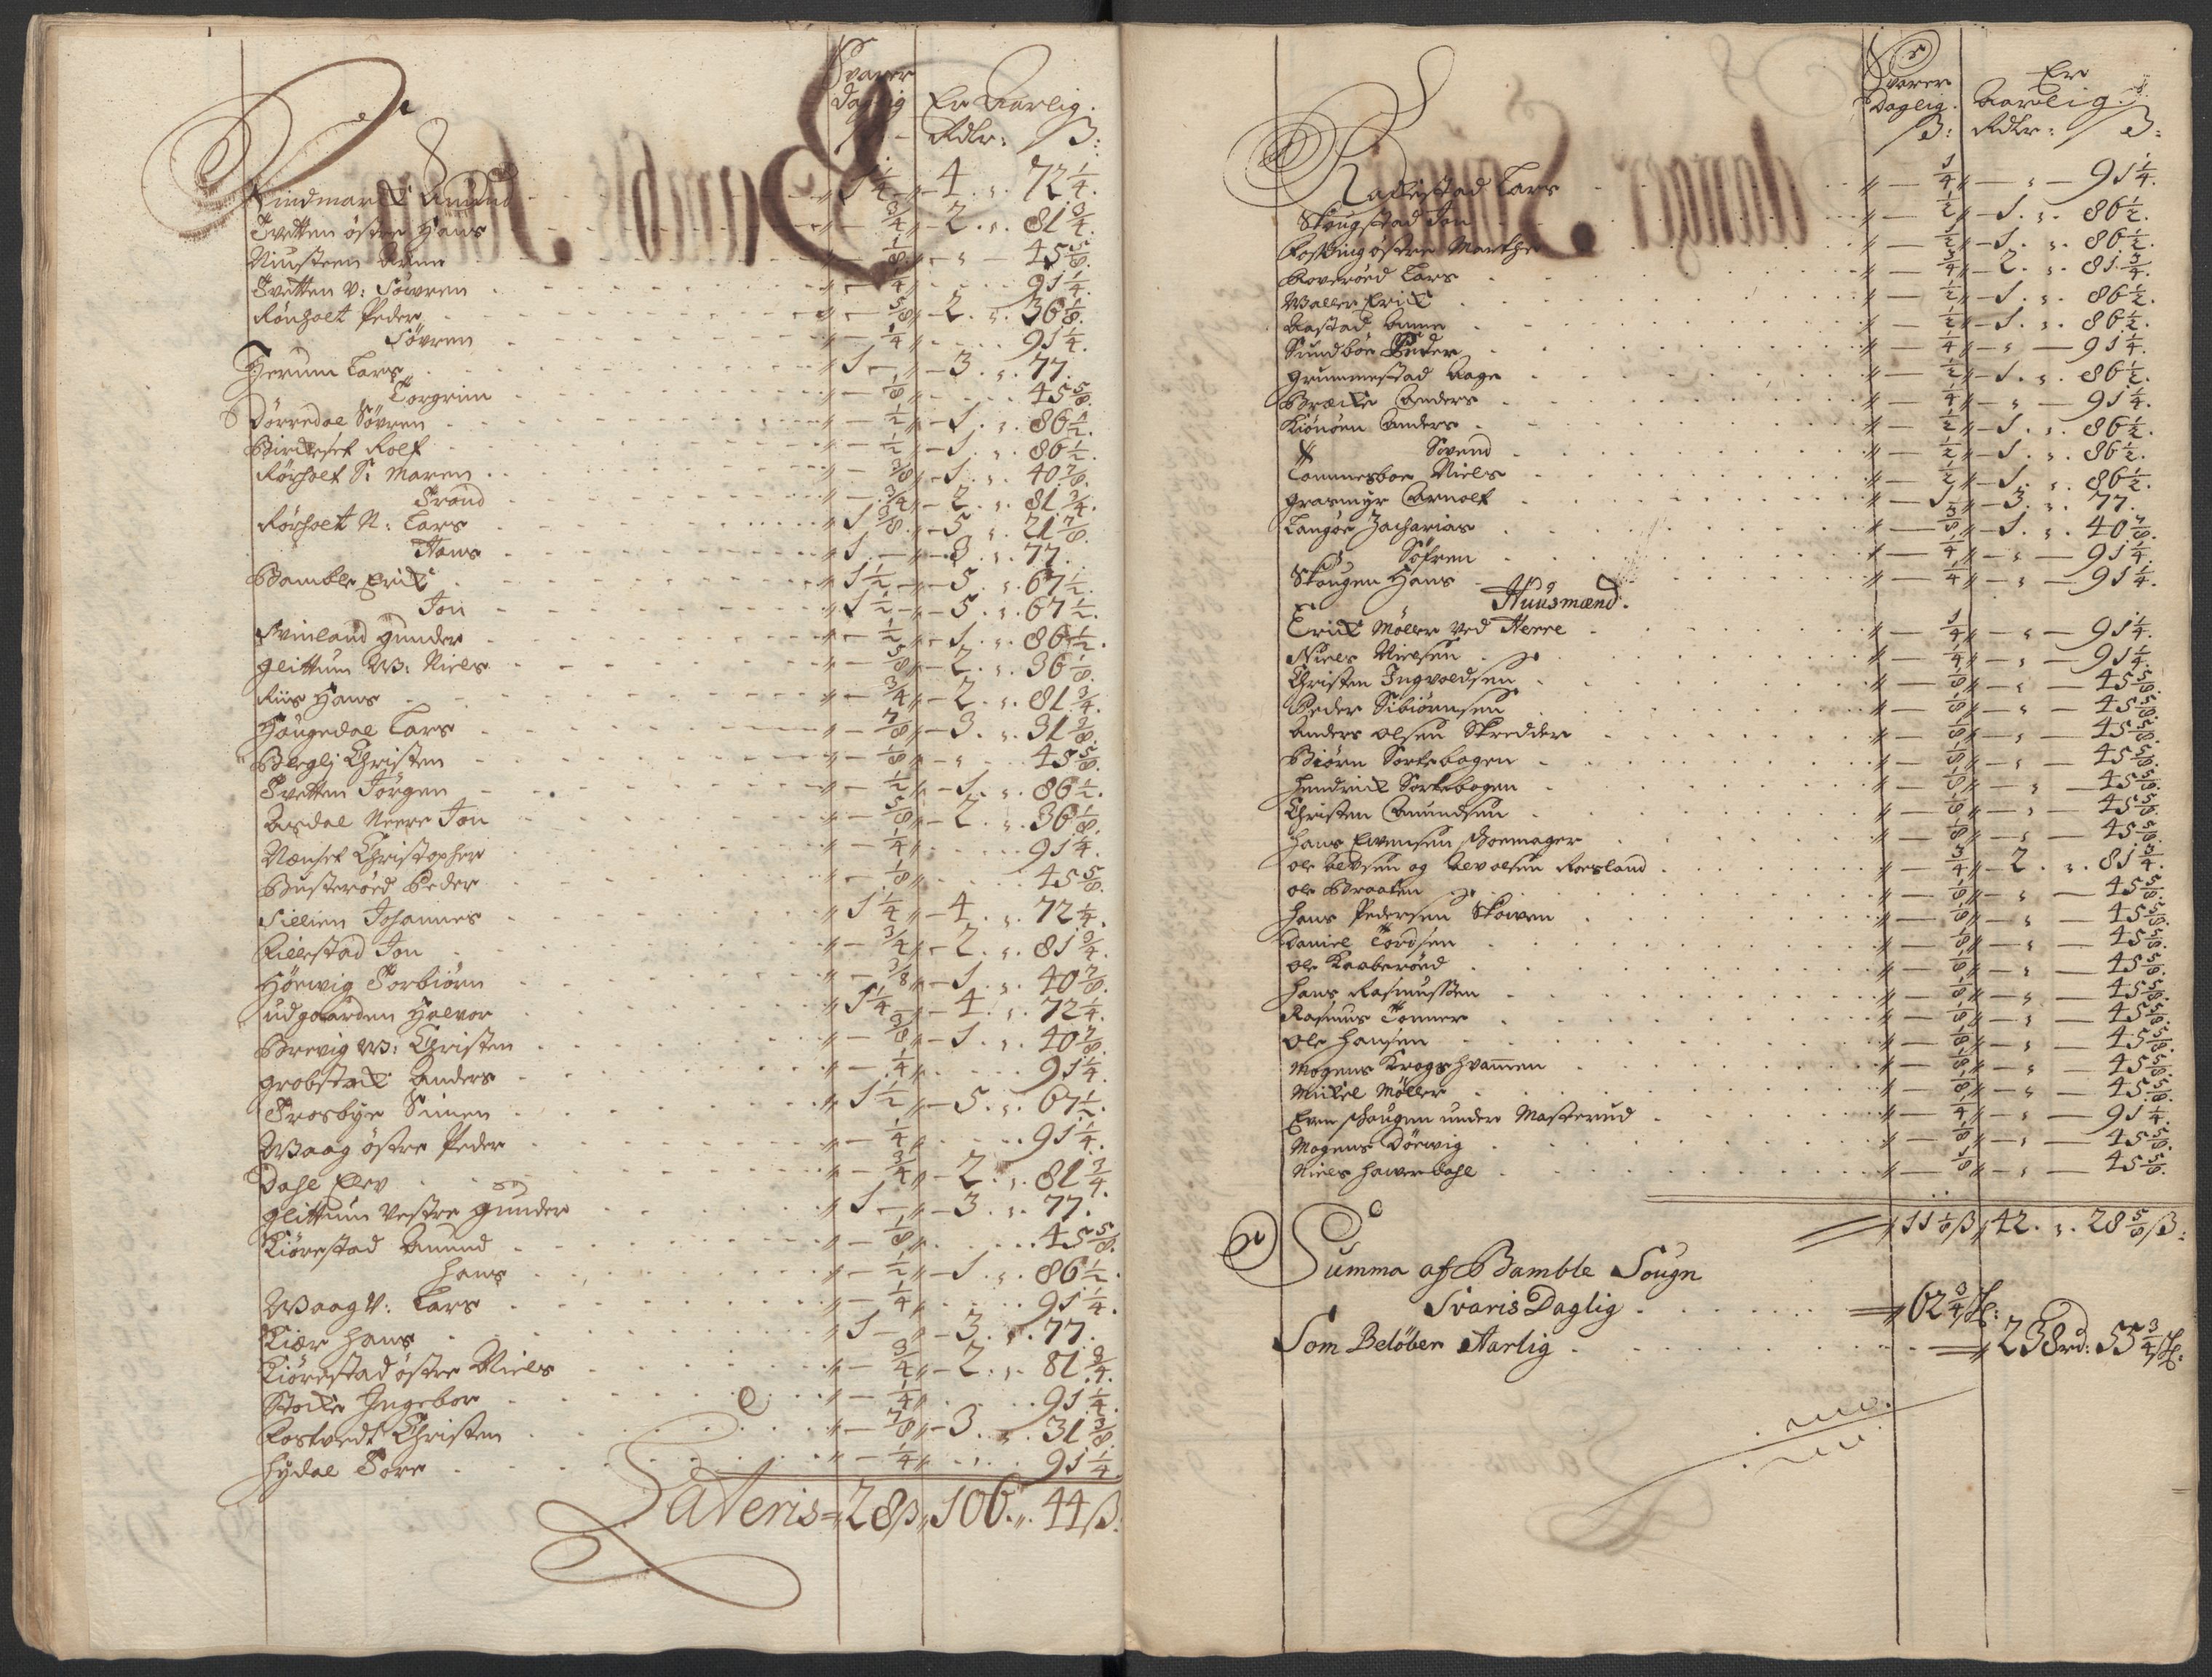 Svarer
Daglig Er Aarlig.
ß - Rdlr: ß:
Findmarck Amund - " 1 1/4 " - 4 . " . 72 1/4.
Tvetten østre Hans - " - 3/4 " - 2 . " . 81 3/4.
Niusteen Anne - " - 1/8 " - " - 45 5/8.
Tvetten V: Søwren - " - 1/4 " - 91 1/4.
Rönholt Peder - " - 5/8 " - 2 . " . 36 1/8.
Søvren - " - 1/4 " - 91 1/4.
Herum Lars - " 1 - " - 3 . " . 77.
Torgrim - " - 1/8 " - 45 5/8.
Dørredal Søvren - " - 1/2 " - 1 . " . 86 1/2.
Rolf - " - 1/2 " - 1 . " . 86 1/2.
Rørholt S: Maren - " - 3/8 " - 1 . " . 40 7/8.
Trond - " - 3/4 " - 2 . " . 81 3/4.
Rørholt N: Lars - " 1 3/8 " - 5 . " . 21 7/8.
Hans - " 1 - " - 3 . " . 77.
Bamble Erick - " 1 1/2 " - 5 . " . 67 1/2.
Jon - " 1 1/2 " - 5 . " . 67 1/2.
Svinland Gunder - " - 1/2 " - 1 . " . 86 1/2.
Glittum W: Niels - " - 5/8 " - 2 . " . 36 1/8.
Riis Hans - " - 3/4 " - 2 . " . 81 3/4.
Haugedal Lars - " - 7/8 " - 3 . " . 31 3/8.
Christen - " - 1/8 " - " - 45 5/8.
Tvetten Jørgen - " - 1/2 " - 1 . " . 86 1/2.
Asdal Neere Jon - " - 5/8 " - 2 . " . 36 1/8.
Nenset Christopher - " - 1/4 " - 91 1/4.
Busterøed Peder - " - 1/8 " - 45 5/8.
Tillien Johannes - " 1 1/4 " - 4 . " . 72 1/4.
Rillestad Jon - " - 3/4 " - 2 . " . 81 3/4.
Hörwig Torbiörn - " - 3/8 " - 1 . " . 40 7/8.
Udgaarden Halvor - " 1 1/4 " - 4 . " . 72 1/4.
Brevig W: Christen - " - 3/8 " - 1 . " . 40 7/8.
Grobstock Anders - " - 1/4 " - 91 1/4.
Trosbye Simen - " 1 1/2 " - 5 . " . 67 1/2.
Waag østre Peder - " - 1/4 " - 91 1/4.
Dahl Elev - " - 3/4 " - 2 . " . 81 3/4.
Glittum Vestre Gunder - " 1 - " - 3 . " . 77.
Kiørestad Amund - " - 1/8 " - 45 5/8.
Hans - " - 1/2 " - 1 . " . 86 1/2.
Waag V: Lars - " - 1/4 " - 91 1/4.
Kiær Hans - " 1 - " - 3 . " . 77.
Kiørestad østre Niels - " - 3/4 " - 2 . " . 81 3/4.
Stocke Ingebor - " - 1/4 " - 91 1/4.
Rostvedt Christen - " - 7/8 " - 3 . " . 31 3/8.
Hydal Tore - " - 1/4 " - 91 1/4.
Lateris = " 28 ß " 106 . " . 44 ß.
Svarer Er
Daglig. Aarlig.
ß: Rdlr: ß:
Rackestad Lars - " - 1/4 " - " - 91 1/4.
Skougstad Jon - " - 1/2 " - 1 . " . 86 1/2.
østre Marthe - " - 1/2 " - 1 . " . 86 1/2.
Boverøed Lars - " - 3/4 " - 2 . " . 81 3/4.
Waller Erick - " - 1/2 " - 1 . " . 86 1/2.
Aastad Anne - " - 1/2 " - 1 . " . 86 1/2.
Sundbøe Peder - " - 1/4 " - " - 91 1/4.
Grummestad Aage - " - 1/2 " - 1 . " . 86 1/2.
Bræcke Anders - " - 1/4 " - " - 91 1/4.
Kiønøen Anders - " - 1/2 " - 1 . " . 86 1/2.
Svend - " - 1/2 " - 1 . " . 86 1/2.
Tommesboe Niels - " - 1/2 " - 1 . " . 86 1/2.
Grasmyr Arnolf - " - 1 " - 3 . " . 77.
Langøe Zacharias - " - 3/8 " - 1 . " . 40 7/8.
Søfren - " - 1/4 " - " - 91 1/4.
Skougen Hans - " - 1/4 " - " - 91 1/4.
Huusmænd.
Erick Møller ved Herre - " - 1/4 " - " - 91 1/4.
Niels Nielsen - " - 1/4 " - " - 91 1/4.
Christen Ingvoldsen - " - 1/8 " - " - 45 5/8.
Peder Sibiørnsen - " - 1/8 " - " - 45 5/8.
Anders Olsen Skredder - " - 1/8 " - " - 45 5/8.
Biørn Sortebogen - " - 1/8 " - " - 45 5/8.
Hendrick Sortebogen - " - 1/8 " - " - 45 5/8.
Christen Amundsen - " - 1/8 " - " - 45 5/8.
Hans Evensen Skoemager - " - 1/8 " - " - 45 5/8.
Ole Alvsen og Alv Olsen Roesland - " - 3/4 " - 2 . " . 81 3/4.
Ole Braaten - " - 1/8 " - " - 45 5/8.
Hans Pedersen Skowen - " - 1/8 " - " - 45 5/8.
Daniel Tordsen - " - 1/8 " - " - 45 5/8.
Ole Kaaberøed - " - 1/8 " - " - 45 5/8.
Hans Rasmussen - " - 1/8 " - " - 45 5/8.
Rasmus Tønner - " - 1/8 " - " - 45 5/8.
Ole Hansen - " - 1/8 " - " - 45 5/8.
Mogens Krogshvammen - " - 1/8 " - " - 45 5/8.
Mickel Møller - " - 1/8 " - " - 45 5/8.
Even Schougen under Masterud - " - 1/4 " - " - 91 1/4.
Mogens Dörwig - " - 1/8 " - " - 45 5/8.
Niels Hawerdahl - " - 1/8 " - " - 45 5/8.
" 11 1/8 ß " 42 . " . 28 5/8 ß:
Summa af Bamble Sougn
Svaris Daglig - 62 3/4 sk:
Som Beløber Aarlig - 238 rd: 55 3/4 sk: